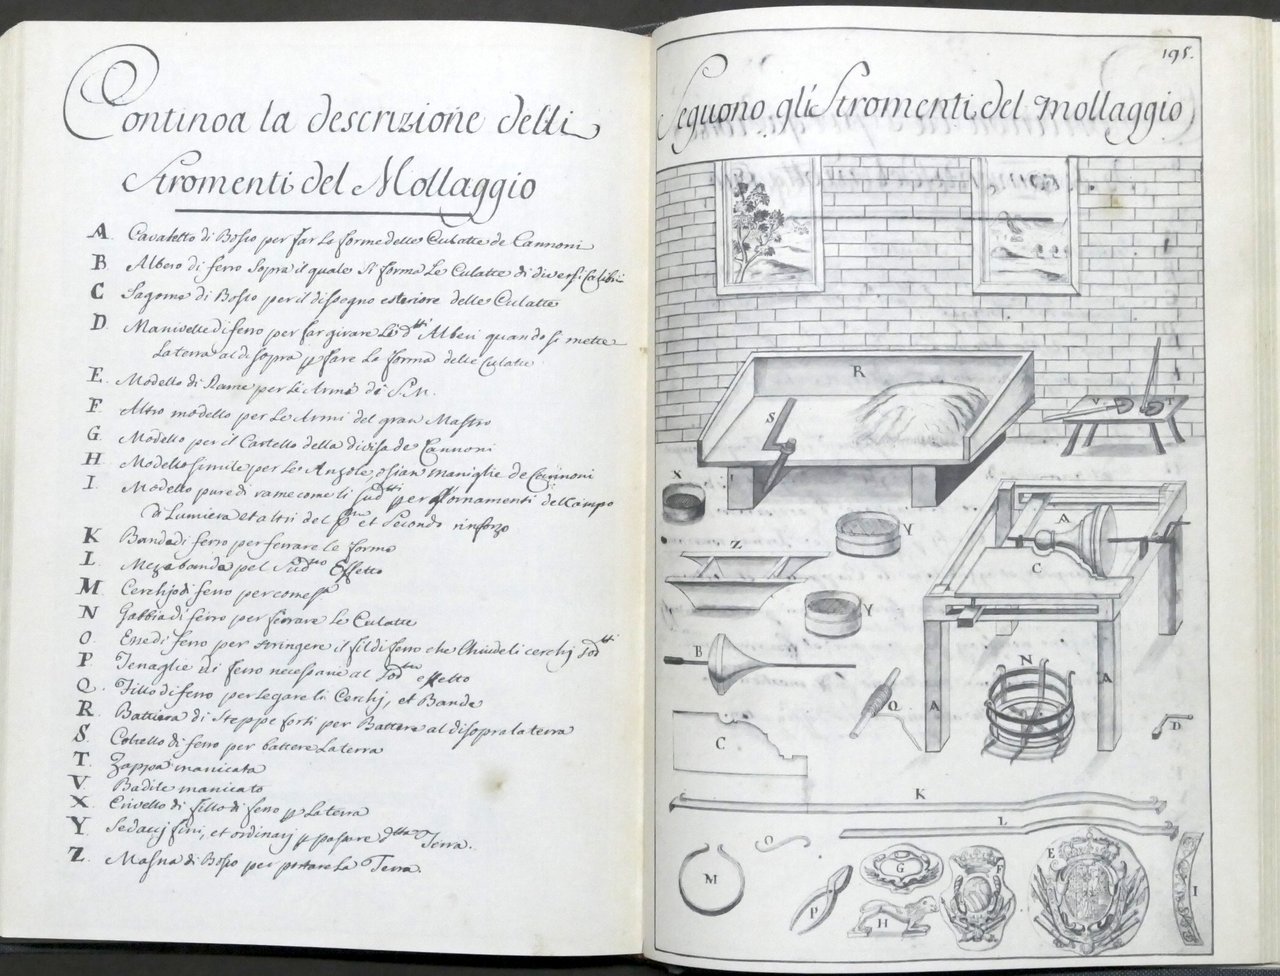 Continoa la descrizione delli
Stromenti del Mollaggio
A Cavaletto di Bosco per far le forme delle Culatte de Cannoni
B Albero di ferro Sopra il quale Si forma Le Culatte di diversi Calibri
C Sagoma di Bosco per il dissegno esteriore delle Culatte
D Manivelle di ferro per far girare Le d.tti Alberi quando si mette
La terra al di sopra p fare La forma delle Culatte
E. Modello di Rame per Le Arme di S.M.
F Altro modello per Le Armi del gran Mastro
G Modello per il Cartello della divisa de Cannoni
H Modello simile per Le Ansole, o sian maniglie de Cannoni
I. Modello pure di rame come li sud.tti per ornamenti del campo
di Lumiera et altri del p.mo et Secondo rinforzo
K Banda di ferro per ferrare le forme
L Meza banda pel Sud.tto Effetto
M Cerchio di ferro per come s.a
N Gabbia di ferro per ferrare Le Culatte
O. Esse di ferro per stringere il fil di ferro che Chiude li cerchj Sod.tti
P Tenaglie di ferro necessarie al Sod.tto effetto
Q. Fillo di ferro per legare li Cerchj, et Bande
R Battiera di Steppe forti per Battere al di sopra la terra
S Coltello di ferro per battere La terra
T. Zappa manicata
V Badile manicato
X Crivello di fillo di ferro p La terra
Y Sedacij fini, et ordinarij p passare d.tta Terra.
Z Masna di Bosco per portare La Terra.
195.
Seguono gli Stromenti del Mollaggio
R
S
V T
X
Y
Z
A
C
Y
B
N
Q
A
A
D
C
K
L
O
G
E
F
M
P
H
I